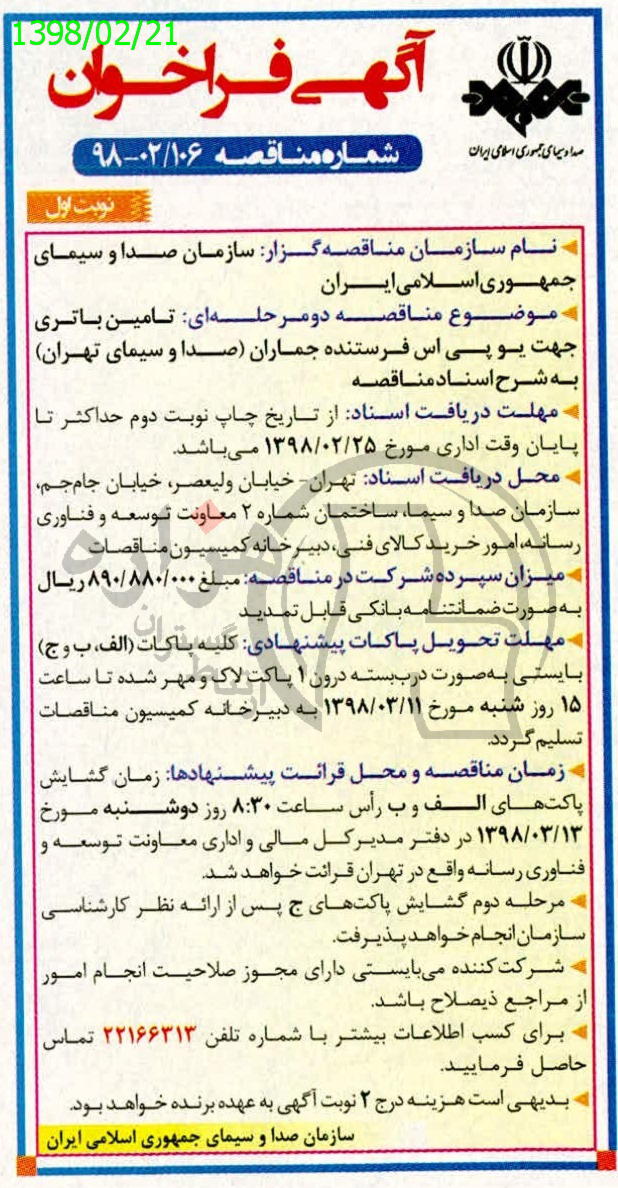 1398/02/21
آگهی فراخوان
صدا و سیمای جمهوری اسلامی ایران
شماره مناقصه ۹۸-۰۲/۱۰۶
نوبت اول
نام سازمان مناقصه‌گزار: سازمان صدا و سیمای
جمهوری اسلامی ایران
موضوع مناقصه دومرحله‌ای: تامین باتری
جهت یو پی اس فرستنده جماران (صدا و سیمای تهران)
به شرح اسناد مناقصه
مهلت دریافت اسناد: از تاریخ چاپ نوبت دوم حداکثر تا
پایان وقت اداری مورخ ۱۳۹۸/۰۲/۲۵ می‌باشد.
محل دریافت اسناد: تهران- خیابان ولیعصر، خیابان جام‌جم،
سازمان صدا و سیما، ساختمان شماره ۲ معاونت توسعه و فناوری
رسانه، امور خرید کالای فنی، دبیرخانه کمیسیون مناقصات
میزان سپرده شرکت در مناقصه: مبلغ ۸۹۰/۸۸۰/۰۰۰ ریال
به‌صورت ضمانتنامه بانکی قابل تمدید
مهلت تحویل پاکات پیشنهادی: کلیه پاکات (الف، ب و ج)
بایستی به‌صورت دربسته درون ۱ پاکت لاک و مهر شده تا ساعت
۱۵ روز شنبه مورخ ۱۳۹۸/۰۳/۱۱ به دبیرخانه کمیسیون مناقصات
تسلیم گردد.
زمان مناقصه و محل قرائت پیشنهادها: زمان گشایش
پاکت‌های الف و ب رأس ساعت ۸:۳۰ روز دوشنبه مورخ
۱۳۹۸/۰۳/۱۳ در دفتر مدیرکل مالی و اداری معاونت توسعه و
فناوری رسانه واقع در تهران قرائت خواهد شد.
مرحله دوم گشایش پاکت‌های ج پس از ارائه نظر کارشناسی
سازمان انجام خواهد پذیرفت.
شرکت‌کننده می‌بایستی دارای مجوز صلاحیت انجام امور
از مراجع ذیصلاح باشد.
برای کسب اطلاعات بیشتر با شماره تلفن ۲۲۱۶۶۳۱۳ تماس
حاصل فرمایید.
بدیهی است هزینه درج ۲ نوبت آگهی به عهده برنده خواهد بود.
سازمان صدا و سیمای جمهوری اسلامی ایران
هزاره